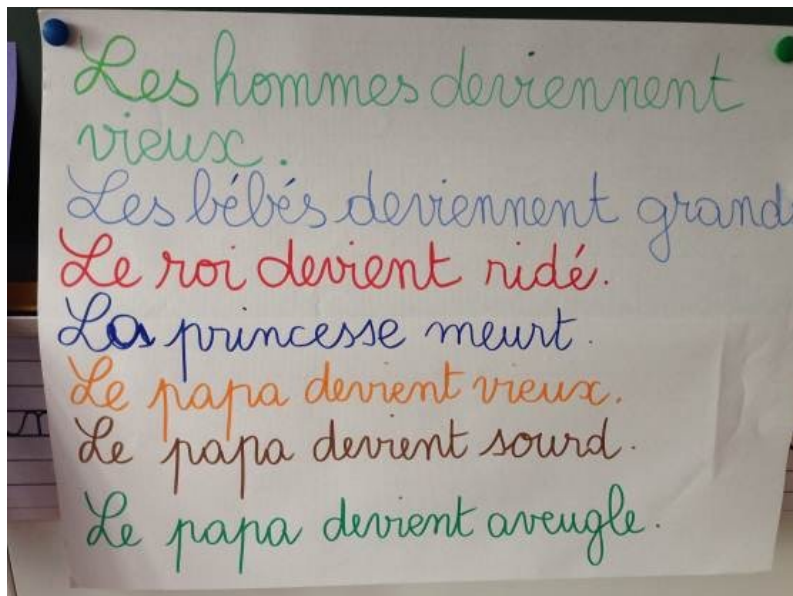 Les hommes deviennent
vieux.
Les bébés deviennent grand
Le roi devient ridé.
La princesse meurt.
Le papa devient vieux.
Le papa devient sourd.
Le papa devient aveugle.